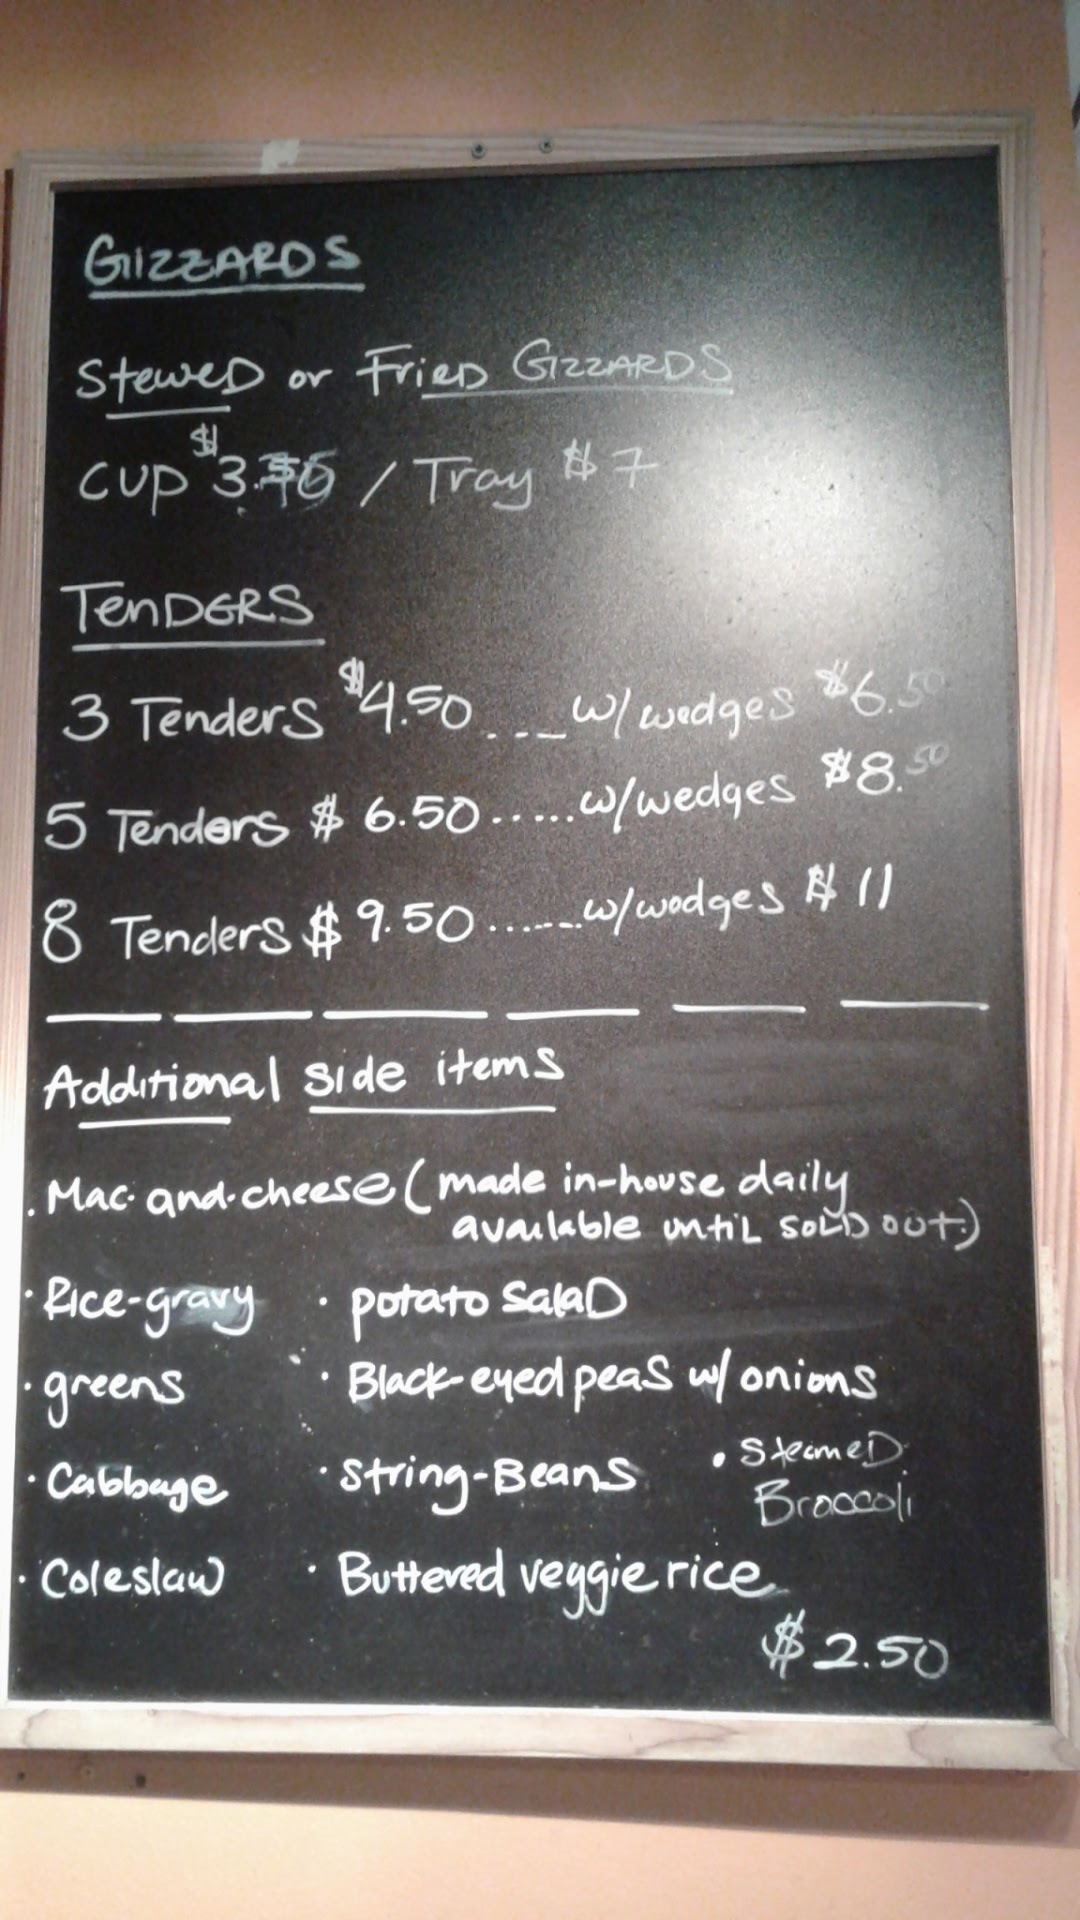 GIZZARDS
Stewed or Fried GIZZARDS
CUP $3. / Tray $7
TENDERS
3 Tenders $4.50 ---- w/ wedges $6.50
5 Tenders $6.50 ...... w/wedges $8.50
8 Tenders $9.50 ...... w/wedges $11
Additional side items
. Mac-and-cheese (made in-house daily
available until SOLD out.)
· Rice-gravy · potato SalaD
· greens · Black-eyed peas w/ onions
· Cabbage · String-Beans · SteameD
Broccoli
· Coleslaw · Buttered veggie rice
$2.50